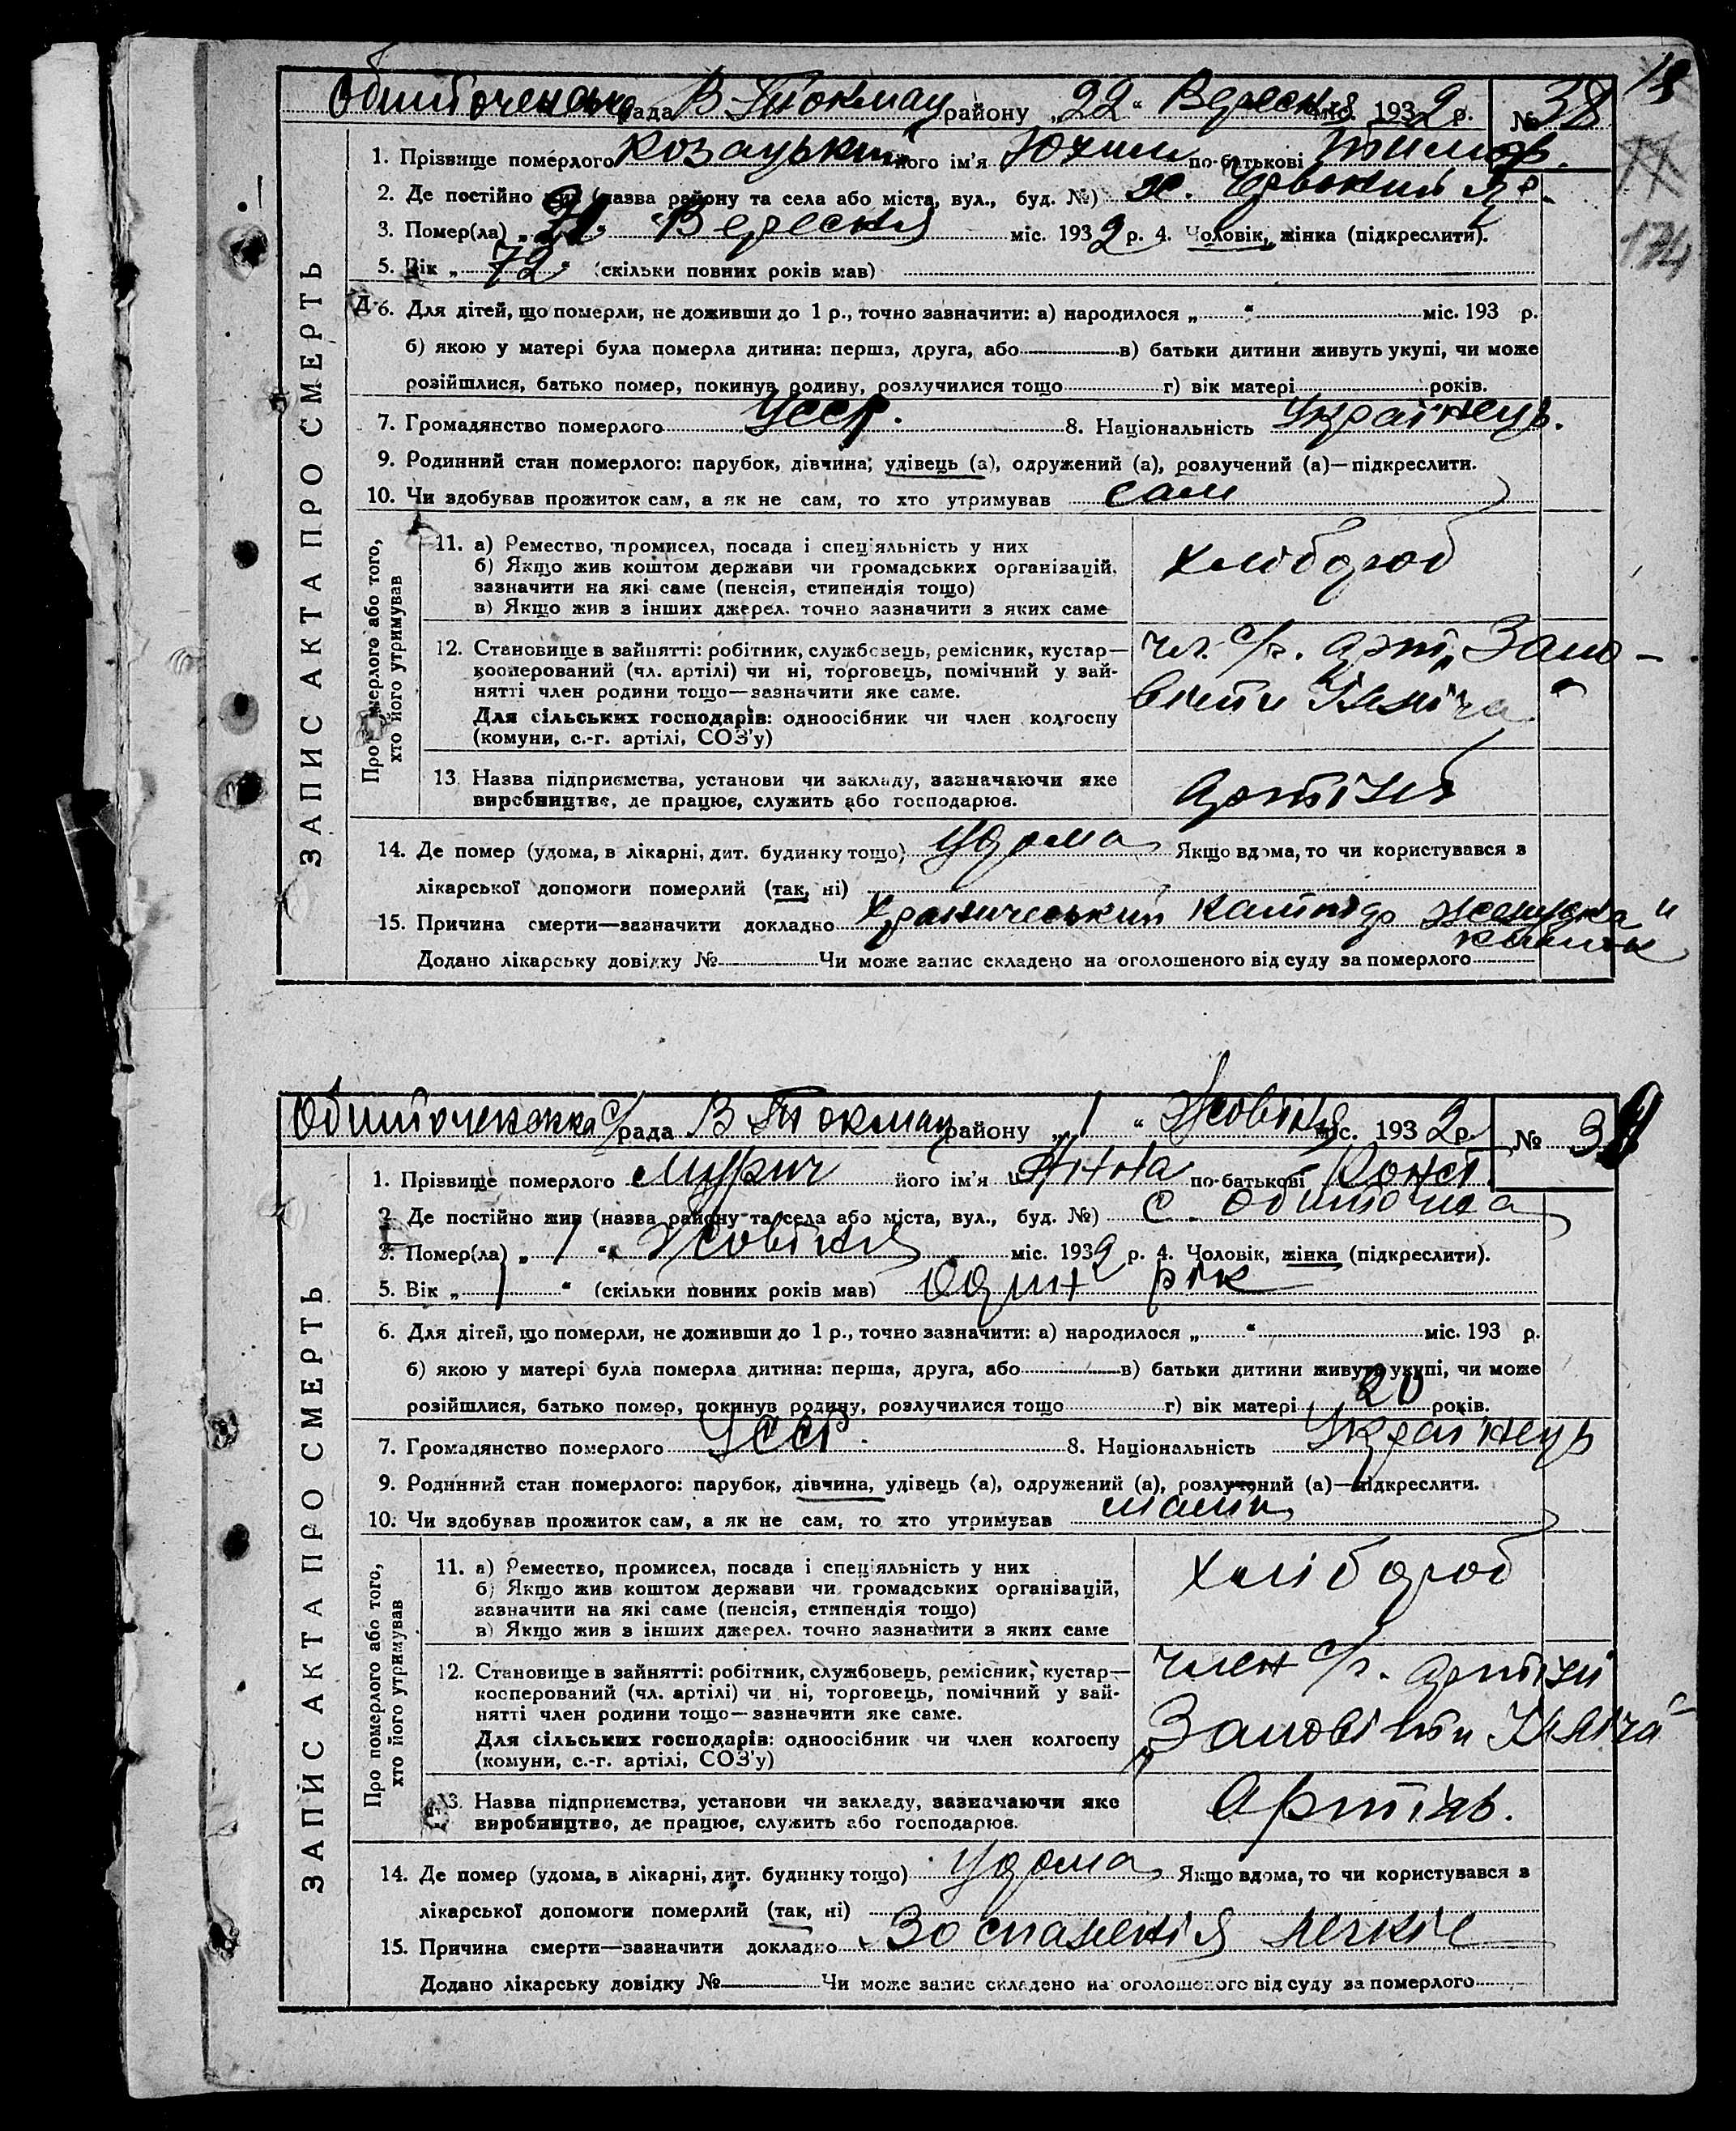 18
174
Обиточенська рада В-Токмац району „22“ Вересня міс. 1932 р. № 38
1. Прізвище померлого Козацький його ім’я Юхим по-батькові Тимоф.
2. Де постійно жив (назва району та села або міста, вул., буд. №) х. Червоний Яр.
3. Помер(ла) „21“ Вересня міс. 1932 р. 4. Чоловік, жінка (підкреслити).
5. Вік „72“ (скільки повних років мав)
6. Для дітей, що померли, не доживши до 1 р., точно зазначити: а) народилося „ “ міс. 193 р.
б) якою у матері була померла дитина: перша, друга, або в) батьки дитини живуть укупі, чи може
розійшлися, батько помер, покинув родину, розлучилися тощо г) вік матері років.
7. Громадянство померлого УССР. 8. Національність Українець.
9. Родинний стан померлого: парубок, дівчина, удівець (а), одружений (а), розлучений (а)—підкреслити.
10. Чи здобував прожиток сам, а як не сам, то хто утримував сам
ЗАПИС АКТА ПРО СМЕРТЬ
Про померлого або того,
хто його утримував
11. а) Ремество, промисел, посада і спеціяльність у них
б) Якщо жив коштом держави чи громадських організацій,
зазначити на які саме (пенсія, стипендія тощо)
в) Якщо жив з інших джерел. точно зазначити з яких саме
хлібороб
12. Становище в зайнятті: робітник, службовець, ремісник, кустар—
кооперований (чл. артілі) чи ні, торговець, помічний у зай-
нятті член родини тощо—зазначити яке саме.
Для сільських господарів: одноосібник чи член колгоспу
(комуни, с.-г. артілі, СОЗ’у)
чл. с/г. арт. „Запо-
віти Ілліча“
13. Назва підприємства, установи чи закладу, зазначаючи яке
виробництво, де працює, служить або господарює.
артіль
14. Де помер (удома, в лікарні, дит. будинку тощо) удома Якщо вдома, то чи користувався з
лікарської допомоги померлий (так, ні)
15. Причина смерти—зазначити докладно желудка и
кишок
Додано лікарську довідку № Чи може запис складено на оголошеного від суду за померлого
Обиточенська с/рада В-Токмац району „1“ Жовтня міс. 1932 р. № 39
1. Прізвище померлого Мурич його ім’я Анна по-батькові Конст
2. Де постійно жив (назва району та села або міста, вул., буд. №) с. Обиточна
3. Помер(ла) „1“ Жовтня міс. 1932 р. 4. Чоловік, жінка (підкреслити).
5. Вік „1“ (скільки повних років мав) Один рік
6. Для дітей, що померли, не доживши до 1 р., точно зазначити: а) народилося „ “ міс. 193 р.
б) якою у матері була померла дитина: перша, друга, або в) батьки дитини живуть укупі, чи може
розійшлися, батько помер, покинув родину, розлучилися тощо г) вік матері 20 років.
7. Громадянство померлого УССР. 8. Національність Українець
9. Родинний стан померлого: парубок, дівчина, удівець (а), одружений (а), розлучений (а)—підкреслити.
10. Чи здобував прожиток сам, а як не сам, то хто утримував мати
ЗАПИС АКТА ПРО СМЕРТЬ
Про померлого або того,
хто його утримував
11. а) Ремество, промисел, посада і спеціяльність у них
б) Якщо жив коштом держави чи громадських організацій,
зазначити на які саме (пенсія, стипендія тощо)
в) Якщо жив з інших джерел. точно зазначити з яких саме
хлібороб
12. Становище в зайнятті: робітник, службовець, ремісник, кустар—
кооперований (чл. артілі) чи ні, торговець, помічний у зай-
нятті член родини тощо—зазначити яке саме.
Для сільських господарів: одноосібник чи член колгоспу
(комуни, с.-г. артілі, СОЗ’у)
член с/г. артілі
„Заповіти Ілліча“
13. Назва підприємства, установи чи закладу, зазначаючи яке
виробництво, де працює, служить або господарює.
Артіль.
14. Де помер (удома, в лікарні, дит. будинку тощо) удома Якщо вдома, то чи користувався з
лікарської допомоги померлий (так, ні)
15. Причина смерти—зазначити докладно Воспаленія легкіє
Додано лікарську довідку № Чи може запис складено на оголошеного від суду за померлого